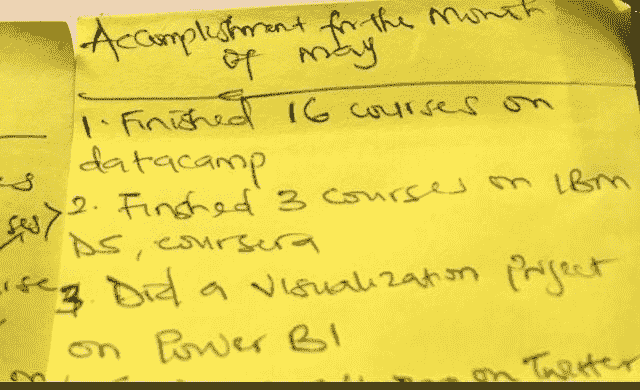 Accomplishment for the Month
of May
1. Finished 16 courses on
datacamp
2. Finshed 3 courses on IBM
DS, coursera
3. Did a visualization project
on Power BI
on Twitter